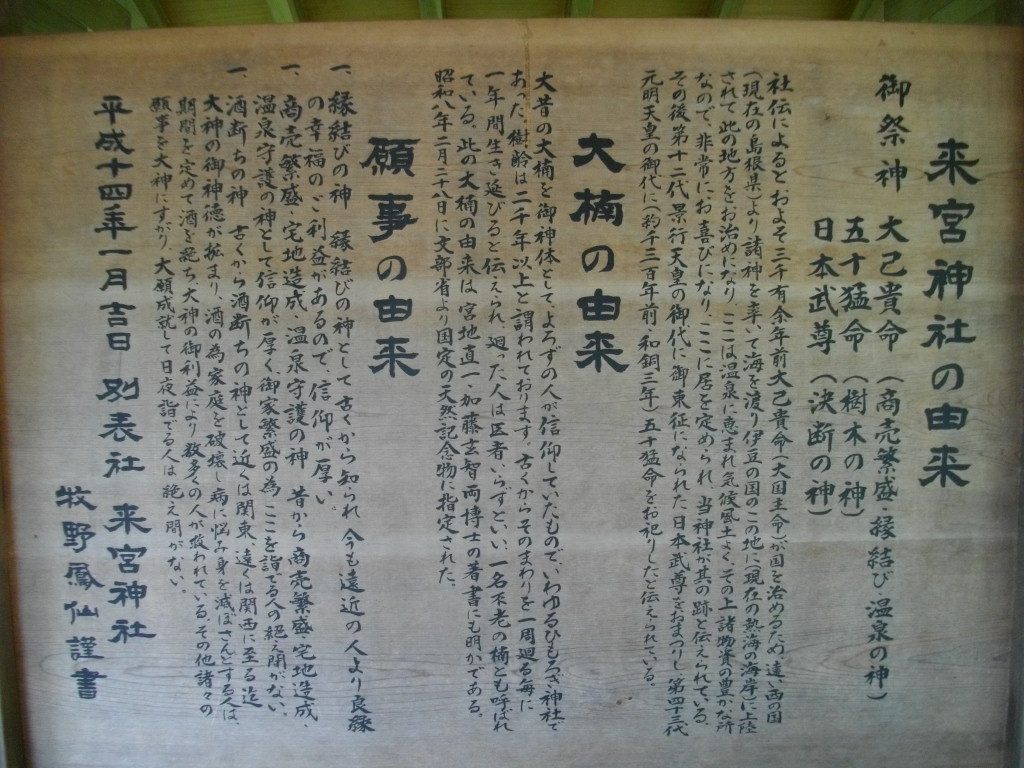 来宮神社の由来
御祭神 大己貴命(商売繁盛・縁結び・温泉の神)
五十猛命(樹木の神)
日本武尊(決断の神)
社伝によるとおよそ三千有余年前大己貴命(大国主命)が国を治めるため遠い西の国
(現在の島根県)より諸神を率いて海を渡り伊豆の国のこの地に現在の熱海の海岸に上陸
されて此の地方をお治めになり、ここは温泉に恵まれ気候風土よく、その上諸物資の豊かな所
なので、非常にお喜びになり、ここに居を定められ、当神社が其の跡と伝えられている。
その後第十二代景行天皇の御代に御東征になられた日本武尊をおまつりし第四十三代
元明天皇の御代に(約千三百年前・和銅三年)五十猛命をお祀りしたと伝えられている。
大楠の由来
大昔の大楠を御神体として、よろずの人が信仰していたもので、いわゆるひもろぎ神社で
あった。樹齢は二千年以上と謂われております。古くからそのまわりを一周廻る毎に
一年間生き延びると伝えられ、廻った人は医者いらずといい、一名不老の楠とも呼ばれ
ている。此の大楠の由来は宮地直一・加藤玄智両博士の著書にも明かである。
昭和八年二月二十八日に文部省より国定の天然記念物に指定された。
願事の由来
一、縁結びの神 縁結びの神として古くから知られ 今も遠近の人より良縁
の幸福のご利益があるので、信仰が厚い。
一、商売繁盛・宅地造成・温泉守護の神 昔から商売繁盛・宅地造成
温泉守護の神として信仰が厚く御家繁盛の為ここを詣でる人の絶え間がない。
一、酒断ちの神 古くから酒断ちの神として近くは関東、遠くは関西に至る迄
大神の御神徳が拡まり、酒の為家庭を破壊し病に悩み身を滅ぼさんとする人は、
期間を定めて酒を断ち、大神の御利益により数多くの人が救われている。その他諸々の
願事を大神にすがり、大願成就して日夜詣でる人は絶え間がない。
平成十四年一月吉日 別表社 来宮神社
牧野鳳仙謹書